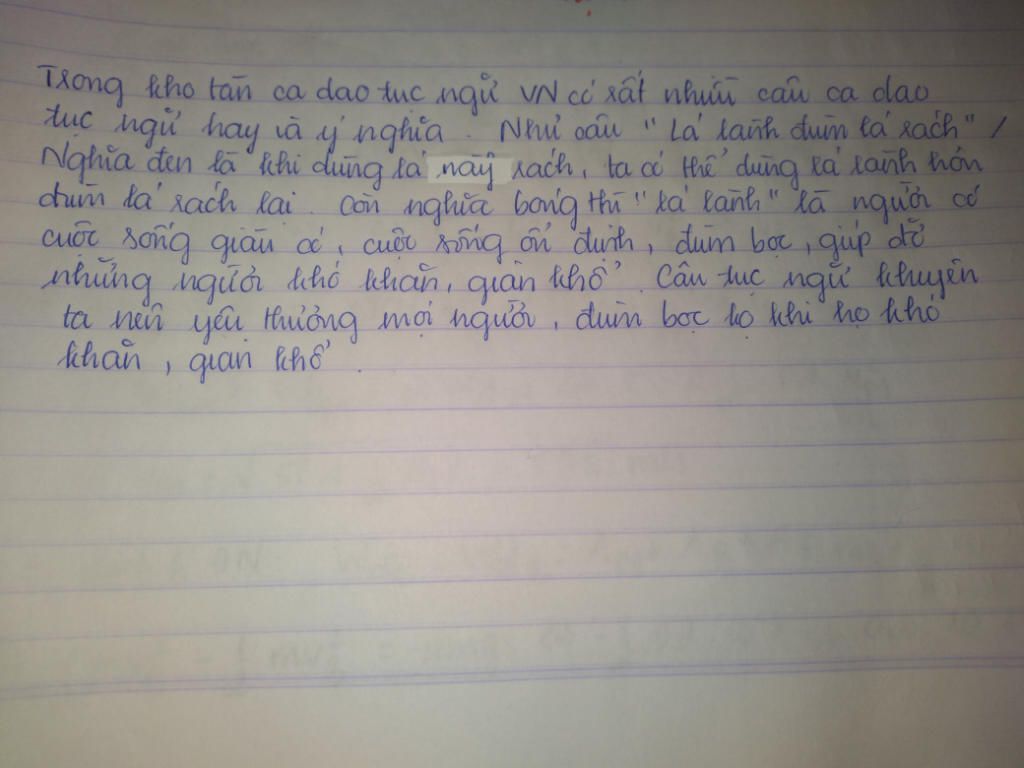 Trong kho tàn ca dao tục ngữ VN có rất nhiều câu ca dao
tục ngữ hay và ý nghĩa. Như câu "Lá lành đùm lá rách" /
Nghĩa đen là khi dùng lá này rách, ta có thể dùng lá lành hơn
đùm lá rách lại. Còn nghĩa bóng thì "lá lành" là người có
cuộc sống giàu có, cuộc sống ổn định, đùm bọc, giúp đỡ
những người khó khăn, gian khổ. Câu tục ngữ khuyên
ta nên yêu thương mọi người, đùm bọc họ khi họ khó
khăn, gian khổ.